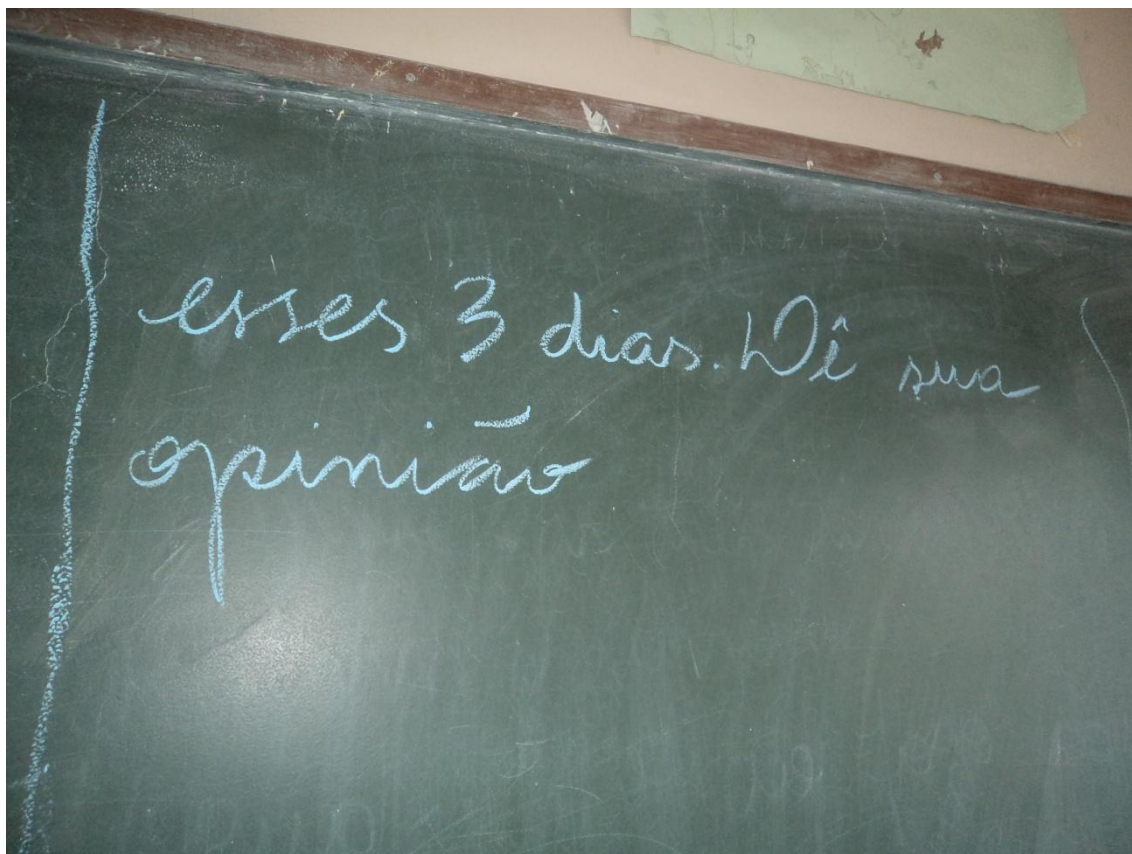 esses 3 dias. Dê sua
opinião